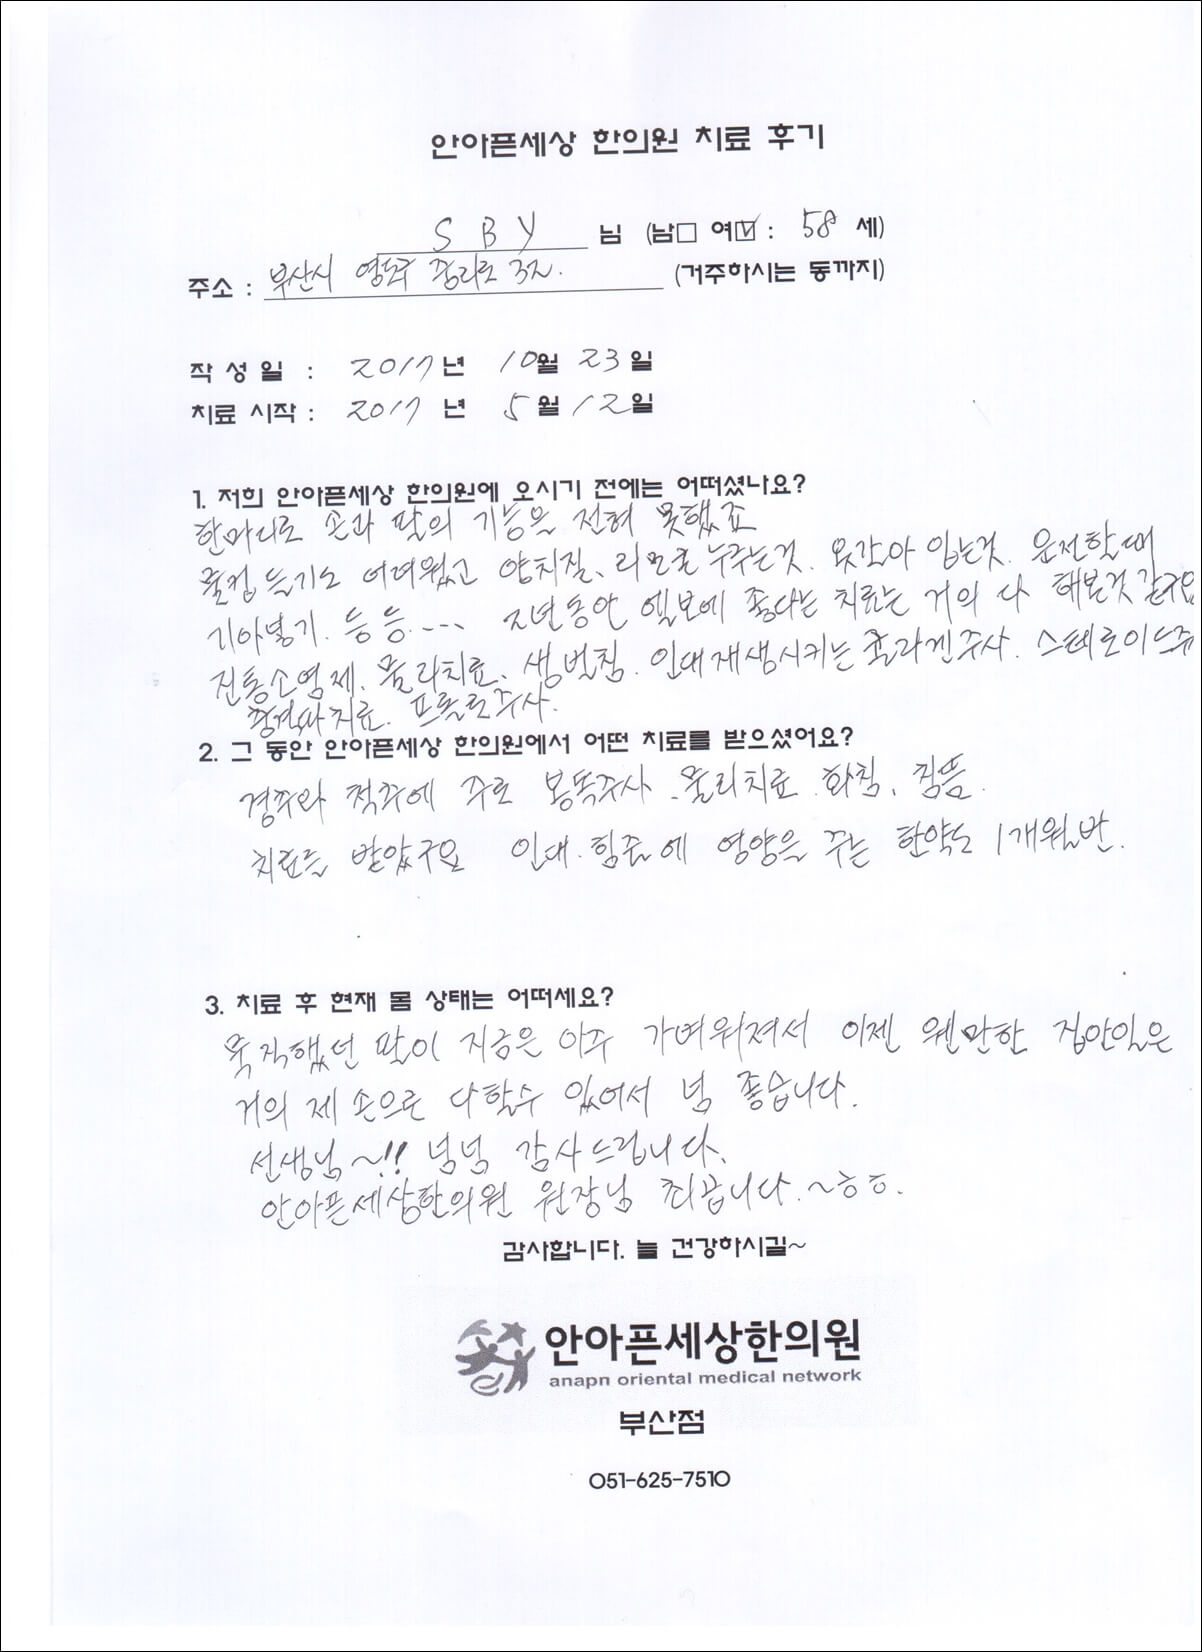 안아픈세상 한의원 치료 후기
S B Y 님 (남□ 여☑ : 58 세)
주소 : 부산시 영도구 중리로 (거주하시는 동까지)
작 성 일 : 2017년 10월 23일
치료 시작 : 2017 년 5월 12일
1. 저희 안아픈세상 한의원에 오시기 전에는 어떠셨나요?
한마디로 손과 팔의 기능은 전혀 못했죠
물컵 들기도 어려웠고 양치질、리모콘 누루는것. 옷갈아 입는것. 운전할때
기아넣기. 등 등.... 2년동안 엘보에 좋다는 치료는 거의 다 해본것 같구요
진통소염제、물리치료、생벌침. 인대재생시키는 콜라겐주사. 스테로이드주
충격파치료. 프롤로주사.
2. 그 동안 안아픈세상 한의원에서 어떤 치료를 받으셨어요?
경추와 척추에 주로 봉독주사、물리치료. 화침、침뜸.
치료를 받았구요 인대.힘줄에 영양을 주는 한약도 1개월반.
3. 치료 후 현재 몸 상태는 어떠세요?
묵직했던 팔이 지금은 아주 가벼워져서 이젠 웬만한 집안일은
거의 제 손으로 다할수 있어서 넘 좋습니다.
선생님~!! 넘넘 감사드립니다.
안아픈세상한의원 원장님 최곱니다.~ㅎㅎ.
감사합니다. 늘 건강하시길~
안아픈세상한의원
anapn oriental medical network
부산점
051-625-7510